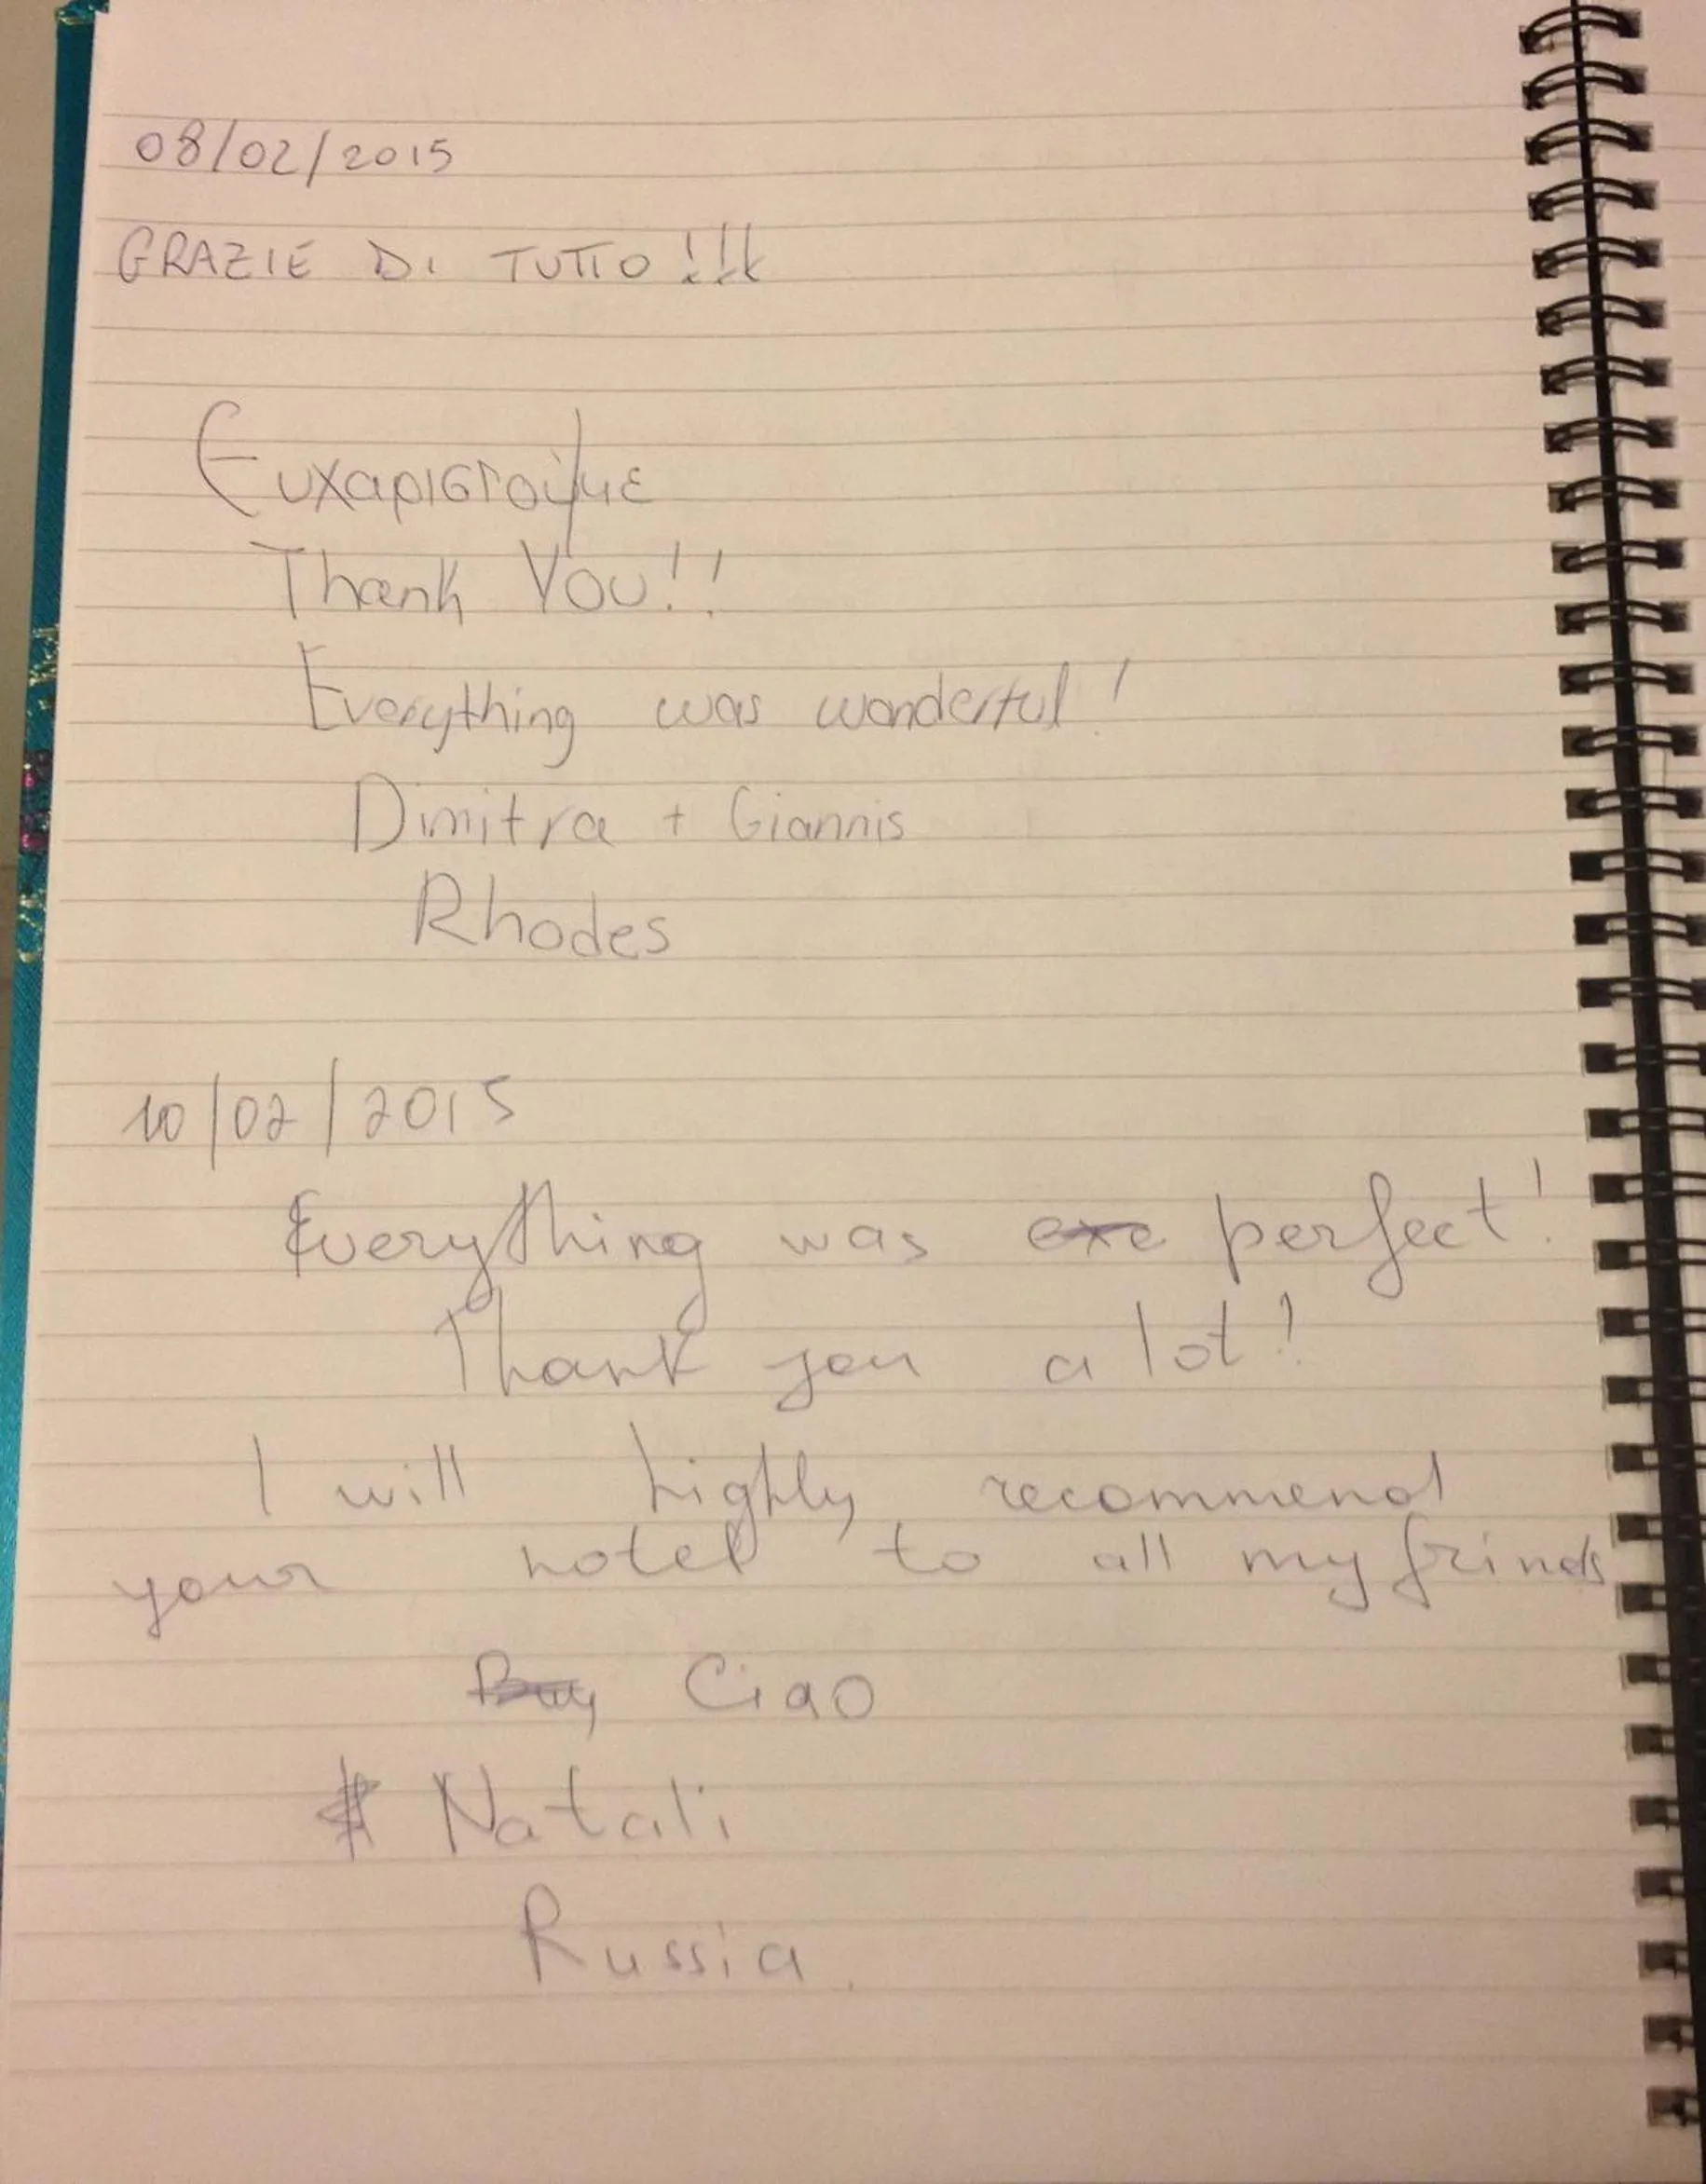 08/02/2015
GRAZIE DI TUTTO!!!
Ευχαριστούμε
Thank You!!
Everything was wonderful!
Dimitra + Giannis
Rhodes
10/02/2015
Everything was exe perfect!
Thank you a lot!
I will highly recommend
your hotel to all my frinds
Ciao
Natali
Russia.